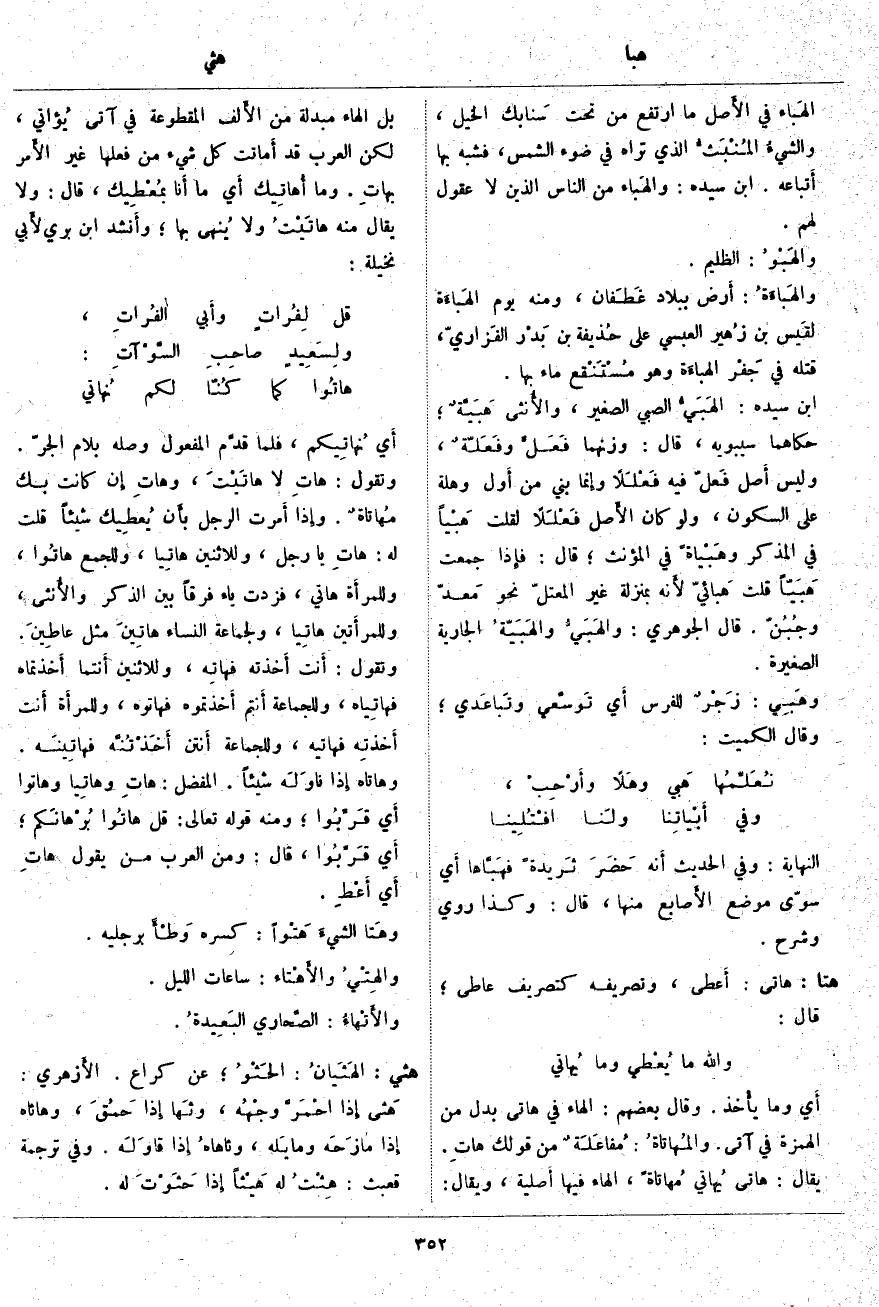 هبا
هثي
الهَباء في الأَصل ما ارتفع من تحت سَنابك الخيل ،
والشيءُ المُنْبَثُّ الذي تراه في ضوء الشمس، فشبه بها
أَتباعه . ابن سيده : والهَباء من الناس الذين لا عقول
لهم .
والهَبْوُ : الظليم .
والهَباءَةُ : أَرض ببلاد غَطَفان ، ومنه يوم الهَباءَة
لقَيس بن زُهير العبسي على حُذيفة بن بَدْر الفَزاريّ،
قتله في جَفْر الهباءَة وهو مُسْتَنْقع ماء بها .
ابن سيده : الهَبَيُّ الصبي الصغير ، والأُنثى هَبَيَّةٌ ؛
حكاهما سيبويه ، قال : وزنهما فَعَلٌّ وفَعَلَّةٌ ،
وليس أَصل فَعَلّ فيه فَعْلَلًا وإنما بني من أَول وهلة
على السكون ، ولو كان الأَصل فَعْلَلًا لقلت هَبْياً
في المذكر وهَبْياةً في المؤنث ؛ قال : فإذا جمعت
هَبَيّاً قلت هَبائيّ لأَنه بمنزلة غير المعتلّ نحو مَعَدّ
وجُبُنّ . قال الجوهري : والهَبَيُّ والهَبَيَّةُ الجارية
الصغيرة .
وهَبَي : زَجْرٌ للفرس أَي تَوسَّعي وتَباعَدي ؛
وقال الكميت :
نُعَلِّمُها هَبي وهَلًا وأَرْحِبْ ،
وفي أَبْياتِنا ولَنا افْتُلِينا
النهاية : وفي الحديث أَنه حَضَرَ ثَريدةً فهَبَّاها أَي
سوّى موضع الأَصابع منها ، قال : وكذا روي
وشرح .
هتا : هاتى : أَعطى ، وتصريفه كتصريف عاطى ؛
قال :
والله ما يُعْطي وما يُهاتي
أَي وما يأْخذ . وقال بعضهم : الهاء في هاتى بدل من
الهمزة في آتى. والمُهاتاةُ : مُفاعَلَةٌ من قولك هاتِ .
يقال : هاتى يُهاتي مُهاتاةً ، الهاء فيها أَصلية ، ويقال:
بل الهاء مبدلة من الأَلف المقطوعة في آتى يُؤاتي ،
لكن العرب قد أَماتت كل شيء من فعلها غير الأَمر
بهاتِ . وما أُهاتِيك أَي ما أَنا بمُعْطِيك ، قال : ولا
يقال منه هاتَيْتُ ولا يُنهى بها ؛ وأَنشد ابن بري لأَبي
نخيلة :
قل لِفُراتٍ وأَبي الفُراتِ ،
ولِسَعِيدٍ صاحِبِ السَّوْآتِ :
هاتُوا كما كُنَّا لكم نُهاتي
أَي نُهاتِيكم ، فلما قدَّم المفعول وصله بلام الجرّ .
وتقول : هاتِ لا هاتَيْتَ ، وهاتِ إن كانت بك
مُهاتاةٌ . وإذا أَمرت الرجل بأَن يُعطِيك شيئاً قلت
له : هاتِ يا رجل ، وللاثنين هاتِيا ، وللجمع هاتُوا ،
وللمرأَة هاتي ، فزدت ياء فرقاً بين الذكر والأُنثى ،
وللمرأَتين هاتِيا ، ولجماعة النساء هاتِينَ مثل عاطِينَ .
وتقول : أَنت أَخذته فهاتِه ، وللاثنين أَنتما أَخذتماه
فهاتِياه ، وللجماعة أَنتم أَخذتموه فهاتوه ، وللمرأَة أَنت
أَخذتِه فهاتيه ، وللجماعة أَنتن أَخَذْتُنَّه فهاتِينَه .
وهاتاه إذا ناوَلَه شيئاً . المفضل : هاتِ وهاتِيا وهاتوا
أَي قَرِّبُوا ؛ ومنه قوله تعالى: قل هاتُوا بُرْهانَكم ؛
أَي قَرِّبُوا ، قال : ومن العرب من يقول هاتِ
أَي أَعْطِ .
وهَتا الشيءَ هَتْواً : كسره وَطْأً برجليه .
والهِتْيُ والأَهْتاء : ساعات الليل .
والأَتْهاءُ : الصَّحاري البَعِيدةُ .
هثي : الهَثَيانُ : الحَثْوُ ؛ عن كراع . الأَزهري :
هَثى إذا احْمَرَّ وجْهُه ، وثَها إذا حَمُقَ ، وهاثاه
إذا مازَحَه ومايَله ، وثاهاهُ إذا قاوَلَه . وفي ترجمة
قعبث : هِئْتُ له هَيْئاً إذا حَثَوْتَ له .
٣٥٢